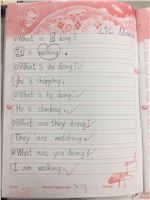 What is it doing?
It is walking.
What is she doing?
She is shopping.
What is he doing?
He is climbing.
What are they doing?
They are watching.
What are you doing?
I am walking.